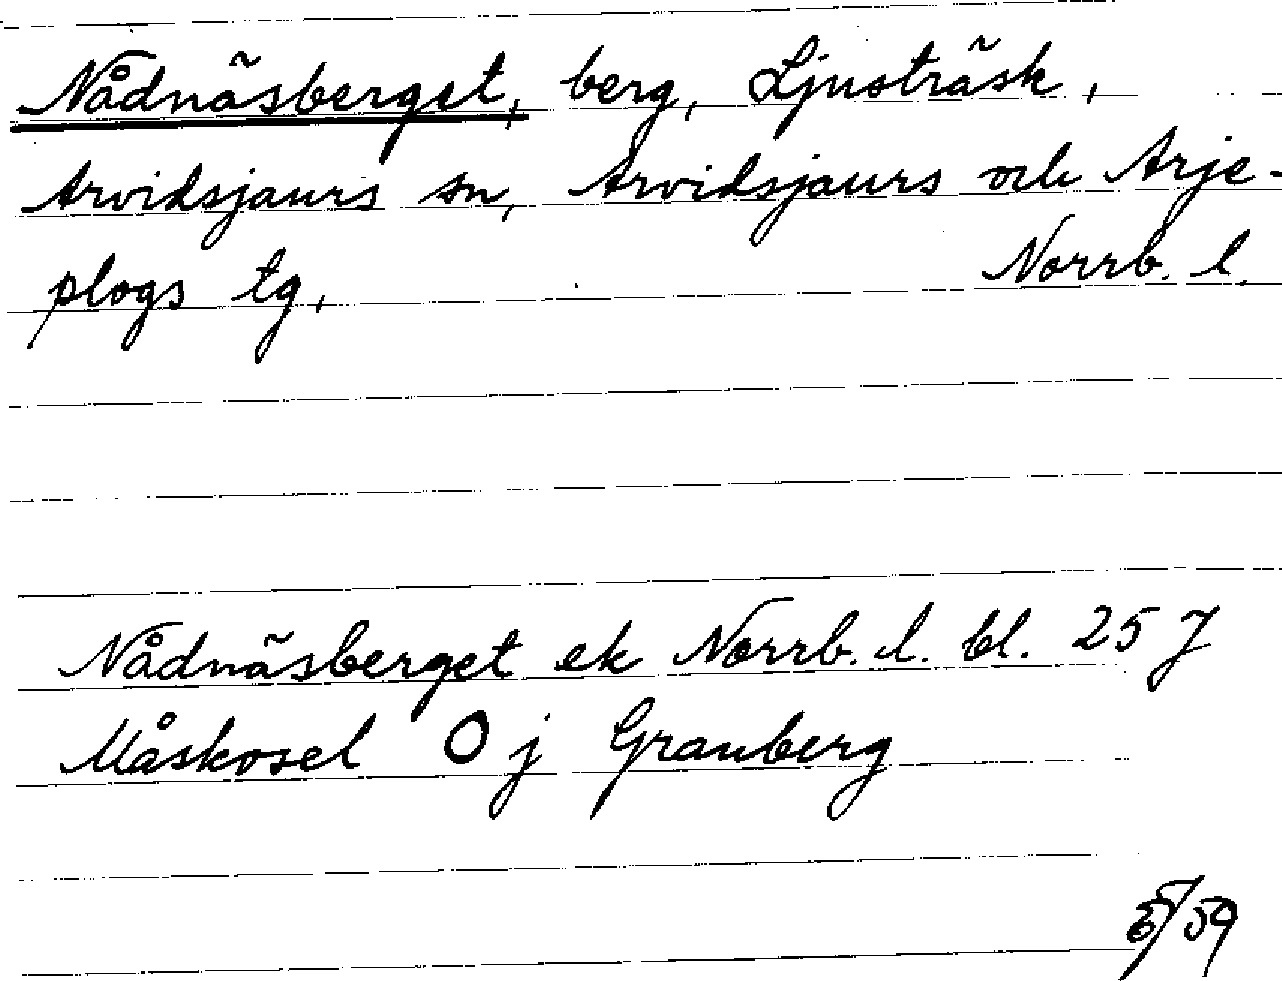 Nådnäsberget, berg, Ljusträsk,
Arvidsjaurs sn, Arvidsjaurs och Arje-
plogs tg, Norrb. l.
Nådnäsberget ek Norrb. l. bl. 25 J
Måskosel O j Granberg
/59